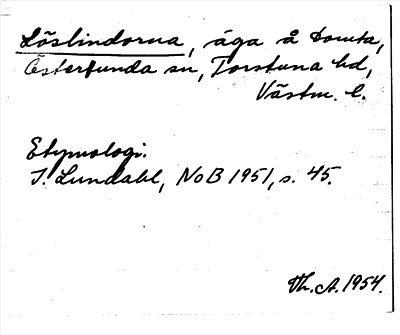 Löslindorna, äga å Domta,
Österfunda sn, Torstuna hd,
Västm. l.
Etymologi.
I. Lundahl, NoB 1951, s. 45.
Th. A. 1954.